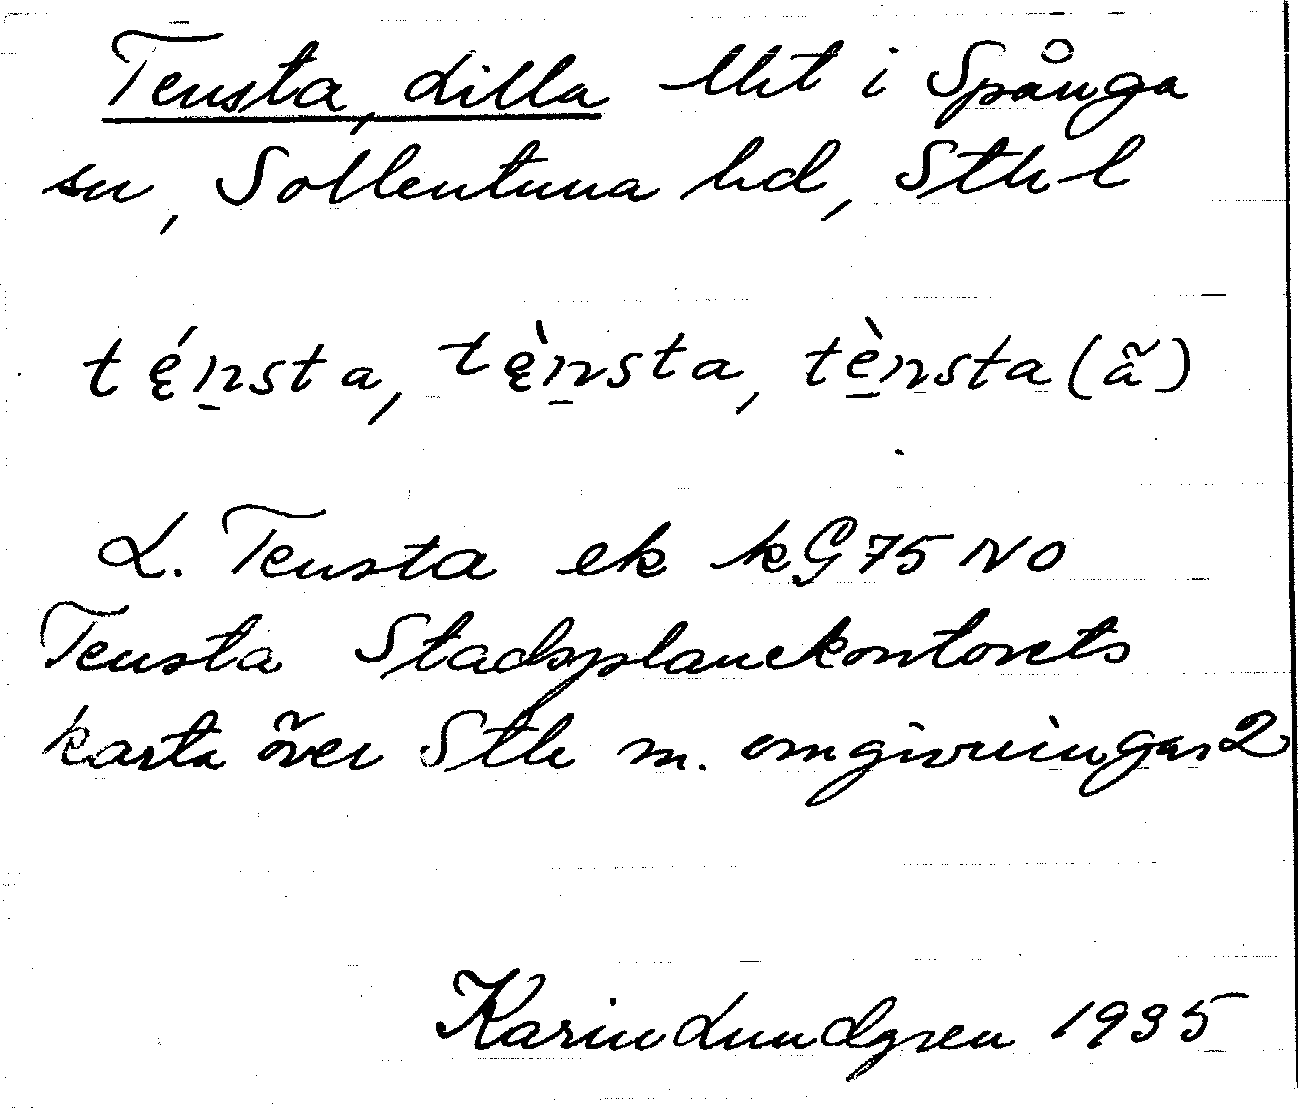 Tensta, Lilla llht i Spånga
sn, Sollentuna hd, Sthl
tę́n̲sta, tę̀n̲sta, tè̲n̲sta (ã)
L. Tensta ek kG 75 NO
Tensta Stadsplanekontorets
karta över Sth m. omgivningar 2
Karin Lundgren 1935